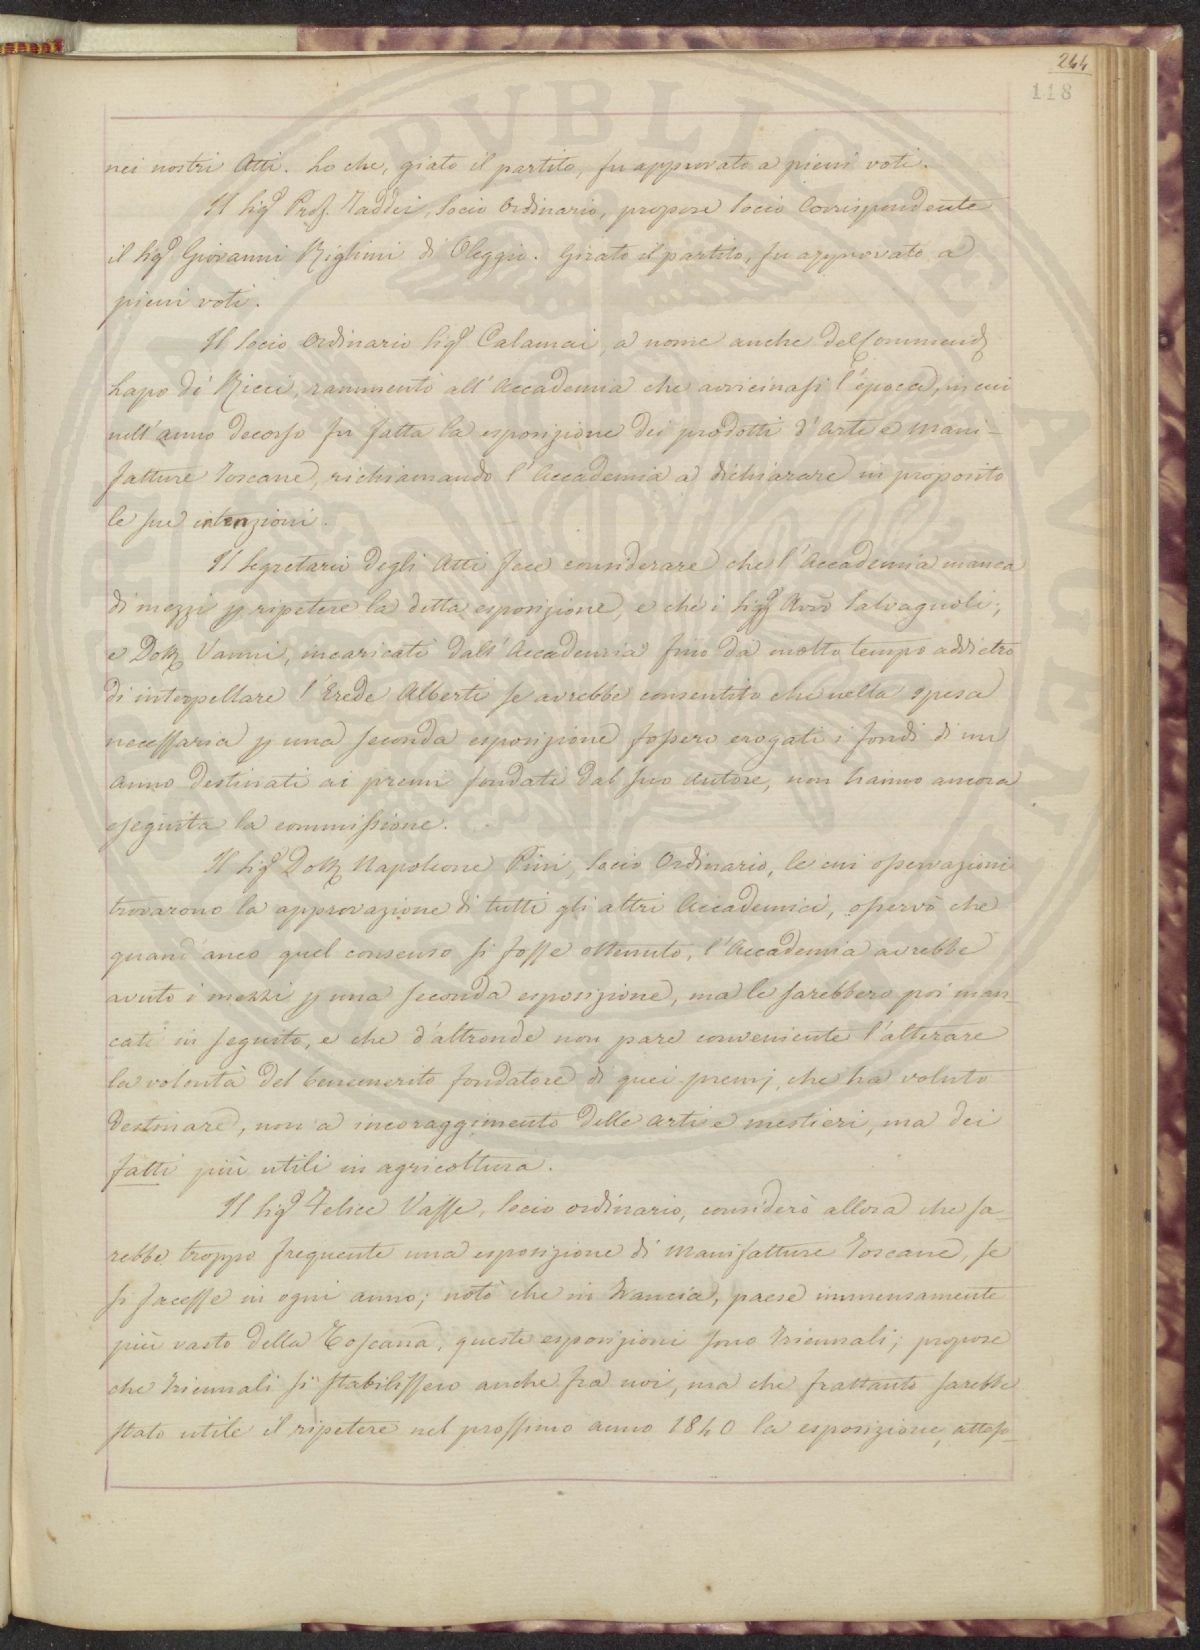 244
118
nei nostri Atti. Lo che, girato il partito, fu approvato a pieni voti.
Il Sig.r Prof. Taddei, Socio Ordinario, propose Socio Corrispondente
il Sig.r Giovanni Righini di Oleggio. Girato il partito, fu approvato a
pieni voti.
Il Socio Ordinario Sig.r Calamai, a nome anche del Commend.
Lapo de' Ricci, rammentò all'Accademia che avvicinasi l'epoca, in cui
nell'anno decorso fu fatta la esposizione dei prodotti d'Arti e Mani-
fatture Toscane, richiamando l'Accademia a dichiarare in proposito
le sue intenzioni.
Il Segretario degli Atti fece considerare che l'Accademia manca
di mezzi p ripetere la detta esposizione, e che i Sigg. Avv.o Salvagnoli,
e Dott. Vanni, incaricati dall'Accademia fino da molto tempo addietro
di interpellare l'Erede Alberti se avrebbe consentito che nella spesa
necessaria p una seconda esposizione fossero erogati i fondi di un
anno destinati ai premi fondati dal suo Autore, non hanno ancora
eseguita la commissione.
Il Sig.r Dott. Napoleone Pini, Socio Ordinario, le cui osservazioni
trovarono la approvazione di tutti gli altri Accademici, osservò che
quand'anco quel consenso si fosse ottenuto, l'Accademia avrebbe
avuto i mezzi p una seconda esposizione, ma le sarebbero poi man-
cati in seguito, e che d'altronde non pare conveniente l'alterare
la volontà del benemerito fondatore di quei premj, che ha voluto
destinare, non a incoraggimento delle arti e mestieri, ma dei
fatti più utili in agricoltura.
Il Sig.r Felice Vasse, Socio ordinario, considerò allora che sa-
rebbe troppo frequente una esposizione di Manifatture Toscane, se
si facesse in ogni anno; notò che in Francia, paese immensamente
più vasto della Toscana, queste esposizioni sono triennali; propose
che triennali si stabilissero anche fra noi, ma che frattanto sarebbe
stato utile il ripetere nel prossimo anno 1840 la esposizione, atteso-